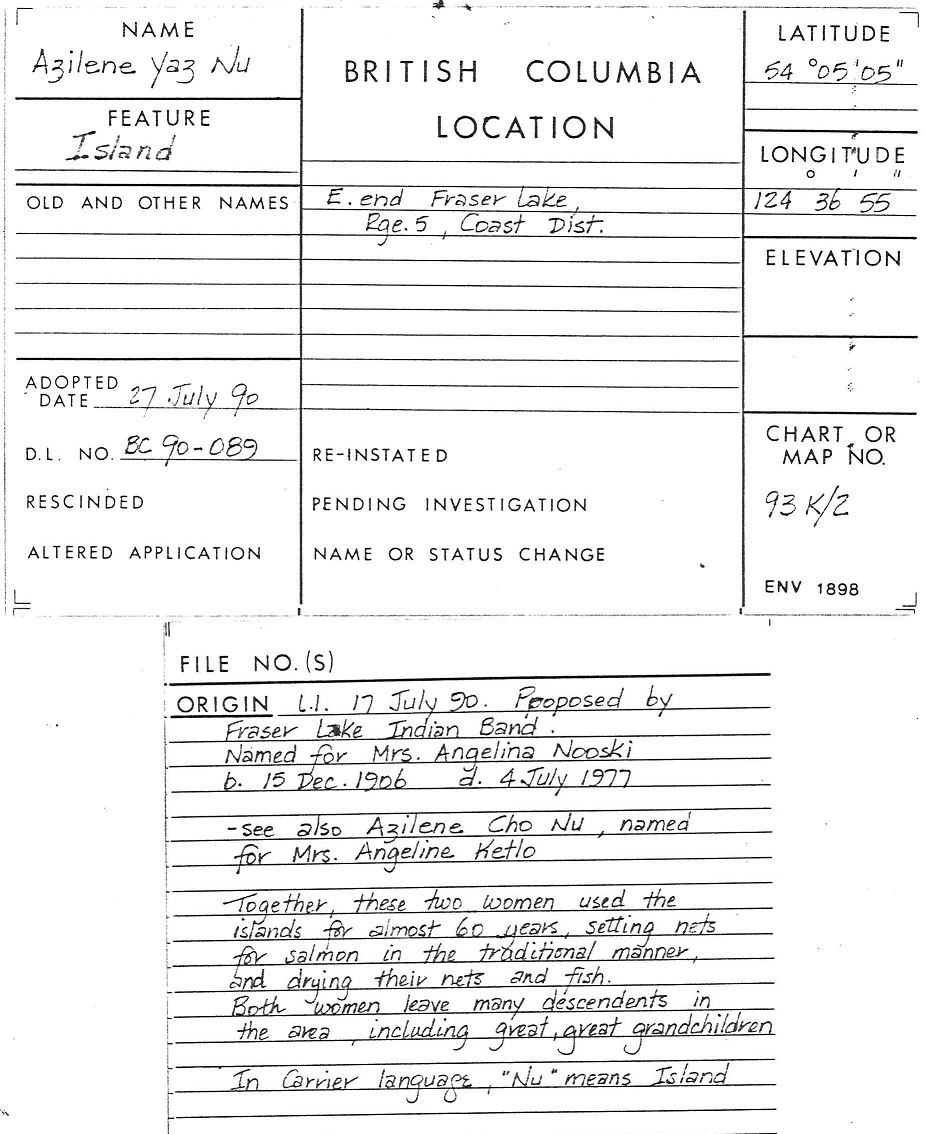 NAME
Azilene Yaz Nu
FEATURE
Island
OLD AND OTHER NAMES
ADOPTED
DATE 27 July 90
D.L. NO. BC 90-089
RESCINDED
ALTERED APPLICATION
BRITISH COLUMBIA
LOCATION
E. end Fraser Lake,
Rge. 5, Coast Dist.
RE-INSTATED
PENDING INVESTIGATION
NAME OR STATUS CHANGE
LATITUDE
54 °05'05"
LONGITUDE
° ' "
124 36 55
ELEVATION
CHART OR
MAP NO.
93 K/2
ENV 1898
FILE NO.(S)
ORIGIN L.I. 17 July 90. Proposed by
Fraser Lake Indian Band.
Named for Mrs. Angelina Nooski
b. 15 Dec. 1906 d. 4 July 1977
- see also Azilene Cho Nu, named
for Mrs. Angeline Ketlo
Together, these two women used the
islands for almost 60 years, setting nets
for salmon in the traditional manner,
and drying their nets and fish.
Both women leave many descendents in
the area, including great, great grandchildren
In Carrier language, "Nu" means Island